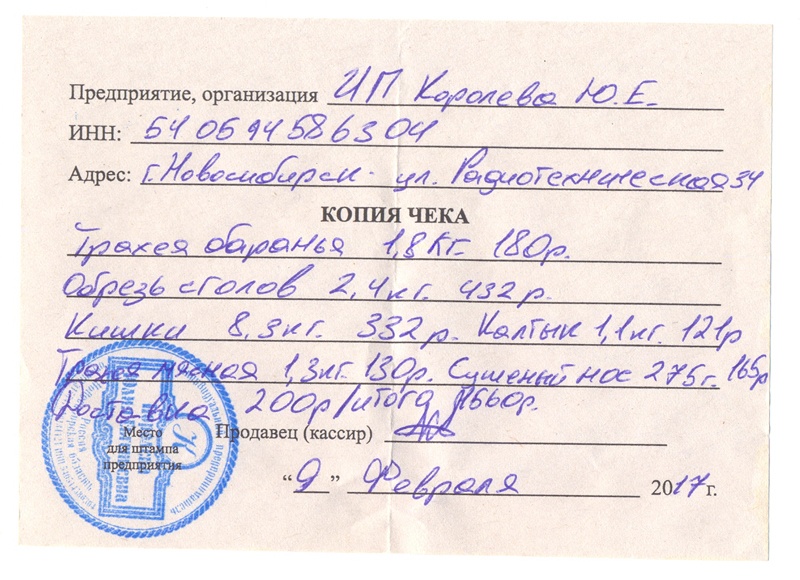 Предприятие, организация ИП Королева Ю.Е.
ИНН: 540694586304
Адрес: г.Новосибирск ул. Радиотехническая 34
КОПИЯ ЧЕКА
Трахея баранья 1,8 кг. 180р.
Обрезь с голов 2,4 кг. 432 р.
Кишки 8,3 кг. 332 р. Калтык 1,1 кг. 121р
Трахея мясная 1,3 кг. 130р. Сушеный нос 275 г. 165р
Доставка 200р/итого 1560р.
Место
для штампа
предприятия
Продавец (кассир)
“ 9 ” Февраля 2017 г.